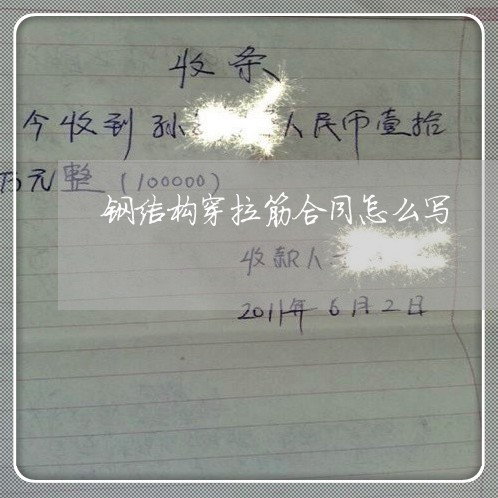 收条
今收到孙 人民币壹拾
万元整(100000)
钢结构穿拉筋合同怎么写
收款人
2011年6月2日